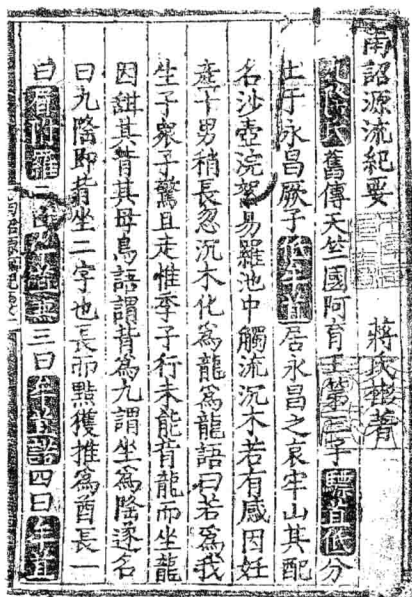 南詔源流紀要
蔣氏 著
舊傳天竺國阿育王第三子驃苴低分
土于永昌厥子低牟苴居永昌之哀牢山其配
名沙壺浣絮易羅池中觸流沉木若有感因妊
產十男稍長忽沉木化為龍為龍語曰若為我
生子衆子驚且走惟季子行未能背龍而坐龍
因䑛其背其母鳥語謂背為九謂坐為隆遂名
曰九隆即背坐二字也長而黠獲推為酋長一
曰 二 三曰 四曰